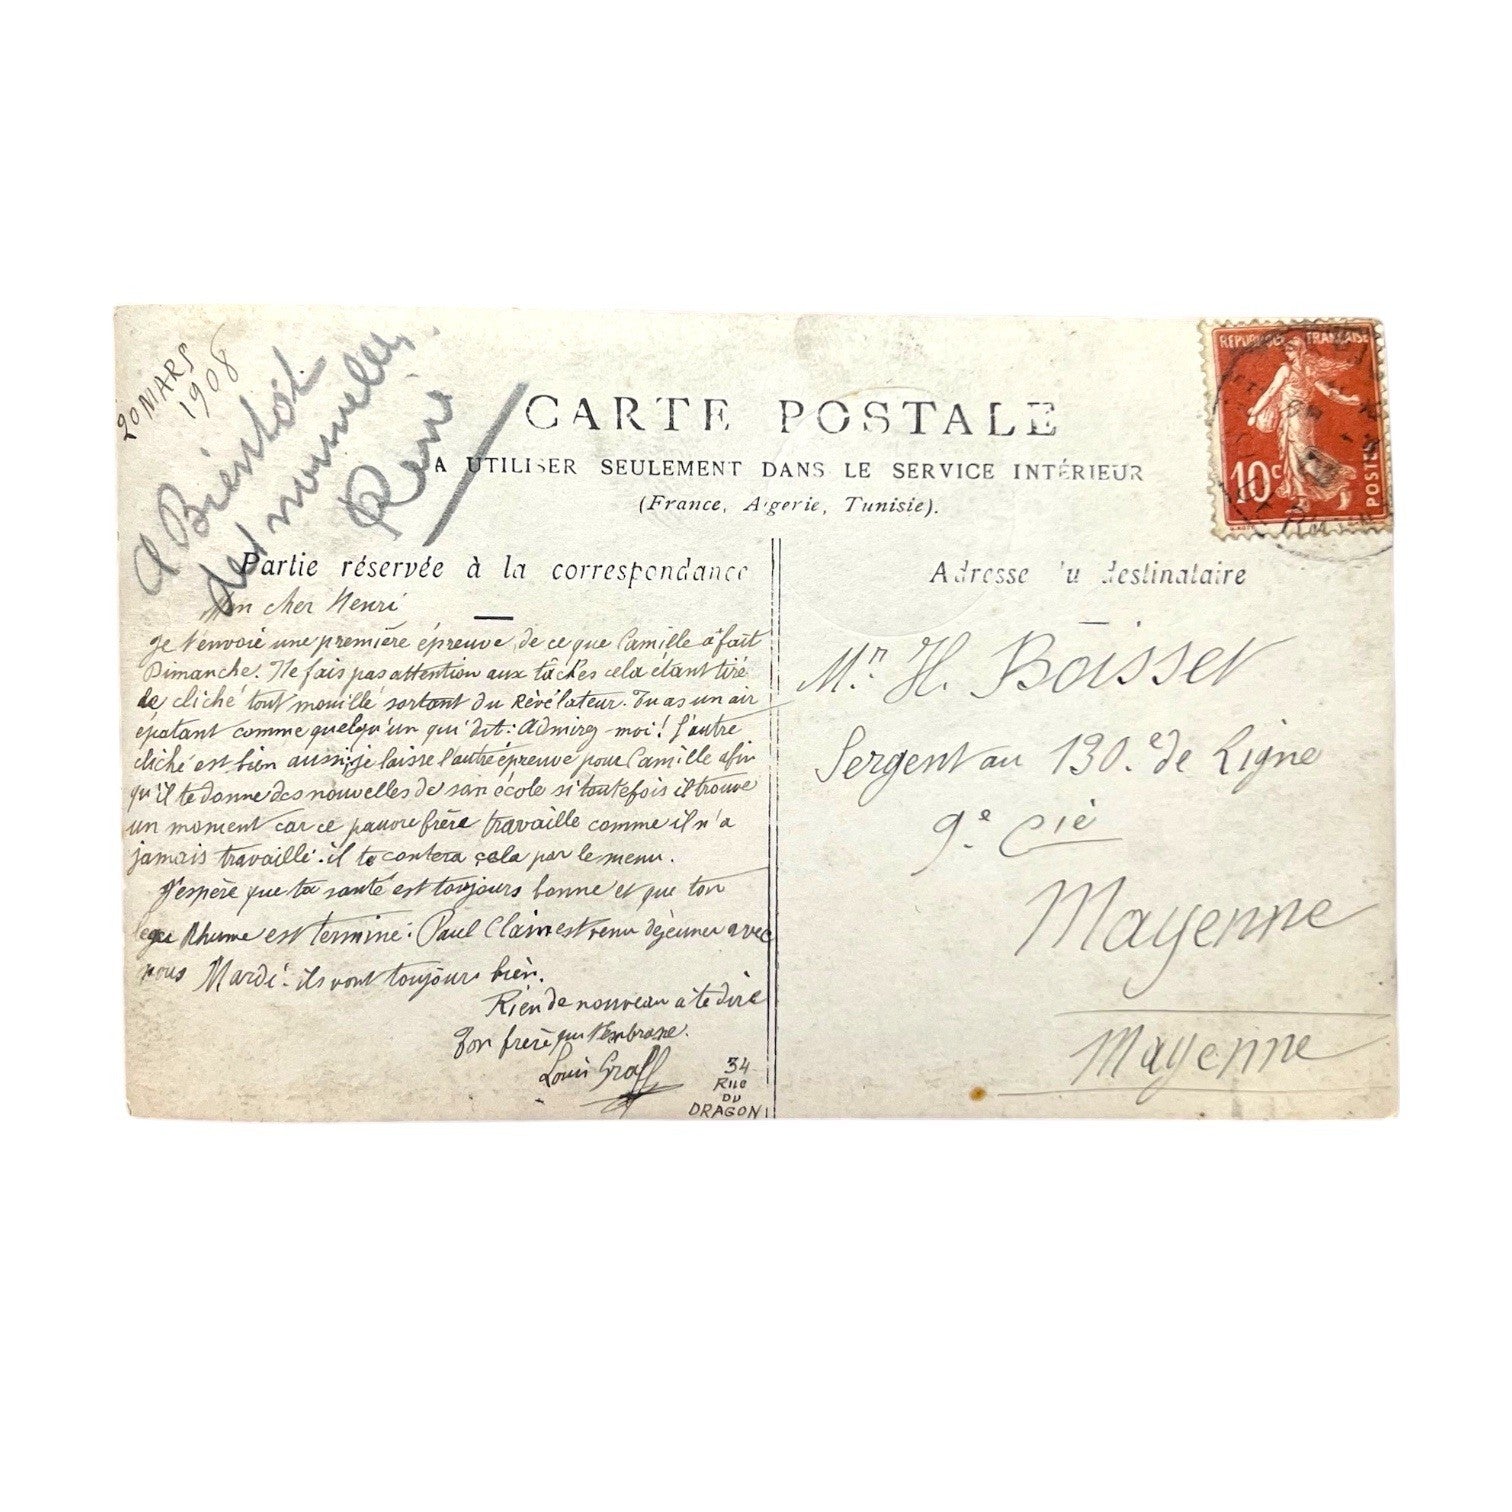 20 MARS
1908
A Bientôt
des nouvelles.
René
CARTE POSTALE
A UTILISER SEULEMENT DANS LE SERVICE INTÉRIEUR
(France, Algérie, Tunisie).
RÉPUBLIQUE FRANÇAISE
10c
POSTES
Partie réservée à la correspondance
Mon cher Henri
Je t'envoie une première épreuve de ce que Camille a fait
Dimanche. Ne fais pas attention aux tâches cela étant tiré
de cliché tout mouillé sortant du Révélateur. Tu as un air
épatant comme quelqu'un qui dit: Admirez-moi! L'autre
cliché est bien aussi; je laisse l'autre épreuve pour Camille afin
qu'il te donne des nouvelles de son école si toutefois il trouve
un moment car ce pauvre frère travaille comme il n'a
jamais travaillé. il te contera cela par le menu.
J'espère que ta santé est toujours bonne et que ton
Rhume est terminé. Paul Clain est venu déjeuner avec
nous Mardi. ils vont toujours bien.
Rien de nouveau à te dire
Ton frère qui t'embrasse.
Louis Graff
34
Rue
DU
DRAGON
Adresse du destinataire
Mr. H. Boisset
Sergent au 130.e de Ligne
9.e Cie
Mayenne
Mayenne